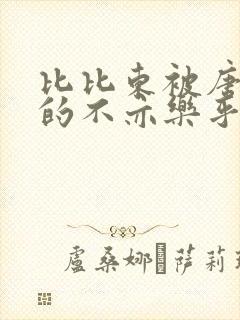 比比東被唐
的不亦樂乎
盧桑娜 萨莉